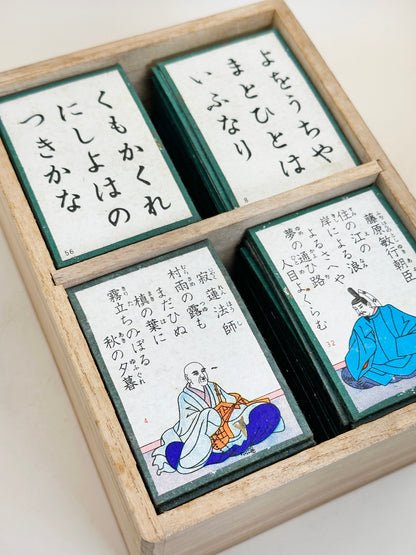 くもかくれ
にしよはの
つきかな
よをうちや
まとひとは
いふなり
8
寂蓮法師
村雨の露も
まだひぬ
槙の葉に
霧立ちのぼる
秋の夕暮
4
藤原敏行朝臣
住の江の
岸による浪
よるさへや
夢の通ひ路
人目よくらむ
32